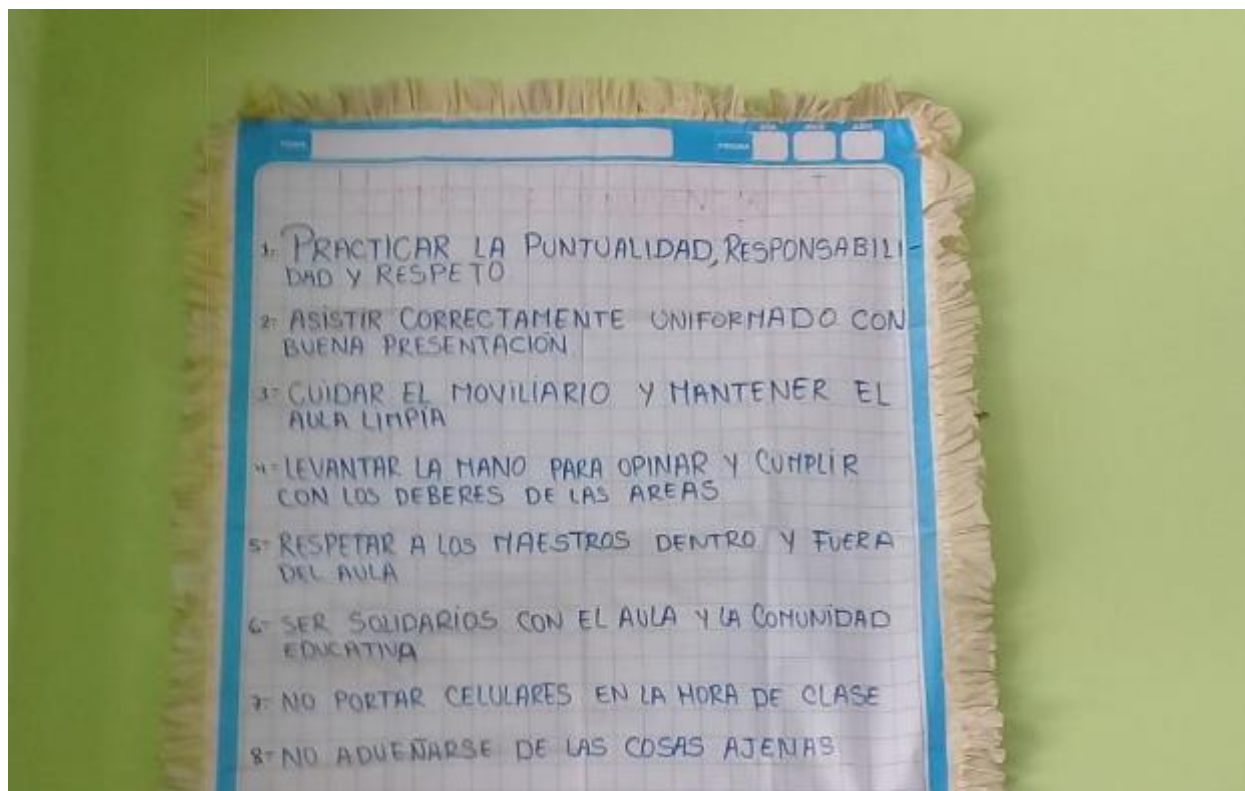 1.- PRACTICAR LA PUNTUALIDAD, RESPONSABILI-
DAD Y RESPETO
2- ASISTIR CORRECTAMENTE UNIFORMADO CON
BUENA PRESENTACIÓN
3- CUIDAR EL MOVILIARIO Y MANTENER EL
AULA LIMPIA
4- LEVANTAR LA MANO PARA OPINAR Y CUMPLIR
CON LOS DEBERES DE LAS AREAS
5- RESPETAR A LOS MAESTROS DENTRO Y FUERA
DEL AULA
6- SER SOLIDARIOS CON EL AULA Y LA COMUNIDAD
EDUCATIVA
7- NO PORTAR CELULARES EN LA HORA DE CLASE
8- NO ADUEÑARSE DE LAS COSAS AJENAS